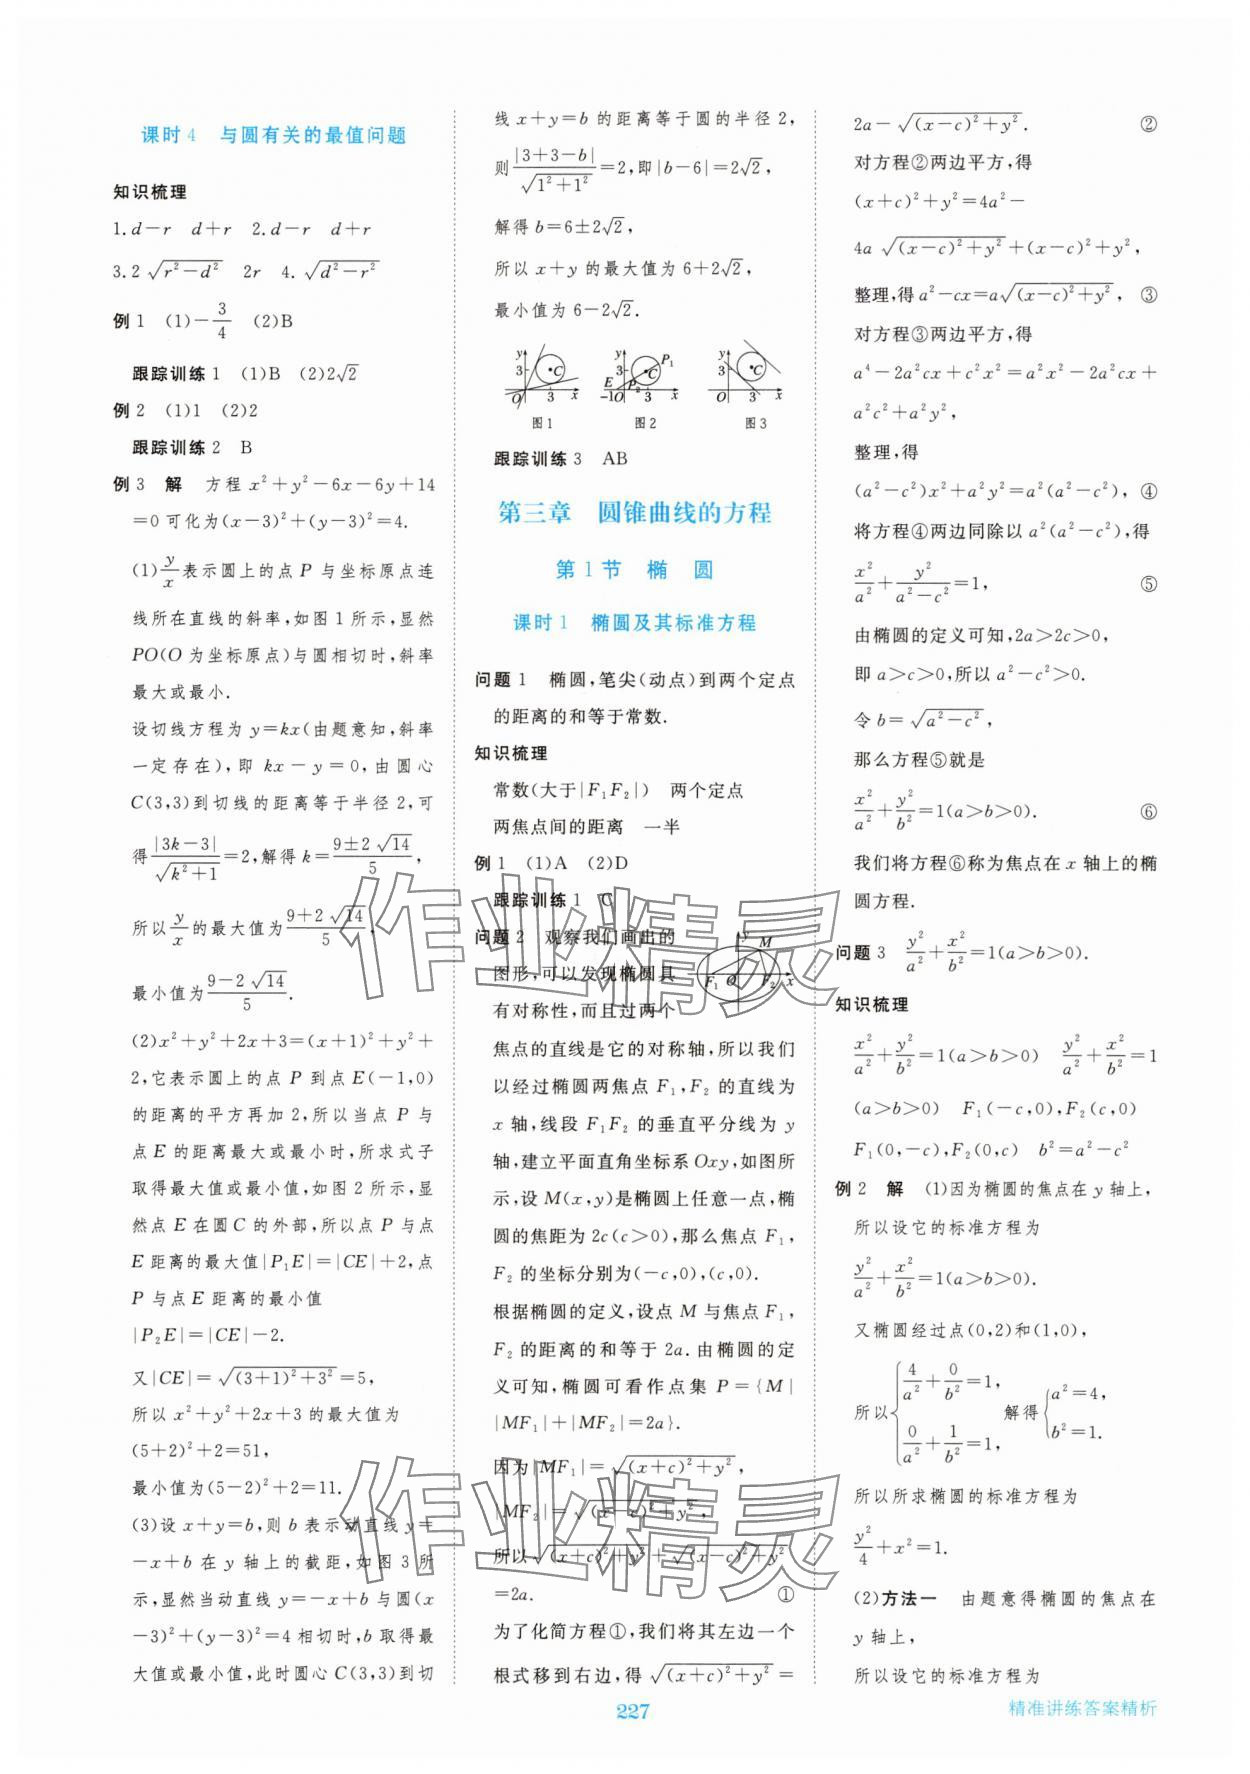 课时4 与圆有关的最值问题
知识梳理
1.d−r d+r 2.d−r d+r
3.2√(r²−d²) 2r 4.√(d²−r²)
例1 (1)−3/4 (2)B
跟踪训练1 (1)B (2)2√2
例2 (1)1 (2)2
跟踪训练2 B
例3 解 方程 x²+y²−6x−6y+14
=0可化为(x−3)²+(y−3)²=4.
(1)y/x表示圆上的点 P 与坐标原点连
线所在直线的斜率,如图1所示,显然
PO(O为坐标原点)与圆相切时,斜率
最大或最小.
设切线方程为 y=kx(由题意知,斜率
一定存在),即 kx−y=0,由圆心
C(3,3)到切线的距离等于半径2,可
得|3k−3|/√(k²+1)=2,解得k=(9±2√14)/5,
所以y/x的最大值为(9+2√14)/5,
最小值为(9−2√14)/5.
(2)x²+y²+2x+3=(x+1)²+y²+
2,它表示圆上的点 P 到点E(−1,0)
的距离的平方再加2,所以当点 P 与
点 E 的距离最大或最小时,所求式子
取得最大值或最小值,如图2所示,显
然点 E 在圆C 的外部,所以点 P 与点
E距离的最大值|P₁E|=|CE|+2,点
P 与点 E 距离的最小值
|P₂E|=|CE|−2.
又|CE|=√((3+1)²+3²)=5,
所以 x²+y²+2x+3 的最大值为
(5+2)²+2=51,
最小值为(5−2)²+2=11.
(3)设 x+y=b,则 b 表示动直线 y=
−x+b 在 y 轴上的截距,如图3所
示,显然当动直线 y=−x+b 与圆(x
−3)²+(y−3)²=4 相切时,b 取得最
大值或最小值,此时圆心 C(3,3)到切
线 x+y=b 的距离等于圆的半径2,
则|3+3−b|/√(1²+1²)=2,即|b−6|=2√2,
解得 b=6±2√2,
所以 x+y 的最大值为 6+2√2,
最小值为 6−2√2.
y 3 C O 3 x
图1
y P₁ 3 C E P₂ −1 O 3 x
图2
y 3 C O 3 x
图3
跟踪训练3 AB
第三章 圆锥曲线的方程
第1节 椭 圆
课时1 椭圆及其标准方程
问题1 椭圆,笔尖(动点)到两个定点
的距离的和等于常数.
知识梳理
常数(大于|F₁F₂|) 两个定点
两焦点间的距离 一半
例1 (1)A (2)D
跟踪训练1 C
问题2 观察我们画出的
图形,可以发现椭圆具
有对称性,而且过两个
y M F₁ O F₂ x
焦点的直线是它的对称轴,所以我们
以经过椭圆两焦点 F₁,F₂ 的直线为
x 轴,线段 F₁F₂ 的垂直平分线为 y
轴,建立平面直角坐标系 Oxy,如图所
示,设 M(x,y)是椭圆上任意一点,椭
圆的焦距为 2c(c>0),那么焦点 F₁,
F₂ 的坐标分别为(−c,0),(c,0).
根据椭圆的定义,设点 M 与焦点 F₁,
F₂ 的距离的和等于 2a.由椭圆的定
义可知,椭圆可看作点集 P={M|
|MF₁|+|MF₂|=2a}.
因为|MF₁|=√((x+c)²+y²),
|MF₂|=√((x−c)²+y²),
所以√((x+c)²+y²)+√((x−c)²+y²)
=2a. ①
为了化简方程①,我们将其左边一个
根式移到右边,得 √((x+c)²+y²)=
2a−√((x−c)²+y²). ②
对方程②两边平方,得
(x+c)²+y²=4a²−
4a √((x−c)²+y²)+(x−c)²+y²,
整理,得a²−cx=a√((x−c)²+y²), ③
对方程③两边平方,得
a⁴−2a²cx+c²x²=a²x²−2a²cx+
a²c²+a²y²,
整理,得
(a²−c²)x²+a²y²=a²(a²−c²), ④
将方程④两边同除以 a²(a²−c²),得
x²/a²+y²/(a²−c²)=1, ⑤
由椭圆的定义可知,2a>2c>0,
即 a>c>0,所以 a²−c²>0.
令 b=√(a²−c²),
那么方程⑤就是
x²/a²+y²/b²=1(a>b>0). ⑥
我们将方程⑥称为焦点在 x 轴上的椭
圆方程.
问题3 y²/a²+x²/b²=1(a>b>0).
知识梳理
x²/a²+y²/b²=1(a>b>0) y²/a²+x²/b²=1
(a>b>0) F₁(−c,0),F₂(c,0)
F₁(0,−c),F₂(0,c) b²=a²−c²
例2 解 (1)因为椭圆的焦点在 y 轴上,
所以设它的标准方程为
y²/a²+x²/b²=1(a>b>0).
又椭圆经过点(0,2)和(1,0),
所以{4/a²+0/b²=1, 0/a²+1/b²=1, 解得{a²=4, b²=1.
所以所求椭圆的标准方程为
y²/4+x²=1.
(2)方法一 由题意得椭圆的焦点在
y 轴上,
所以设它的标准方程为
作业精灵
作业精灵
227
精准讲练答案精析